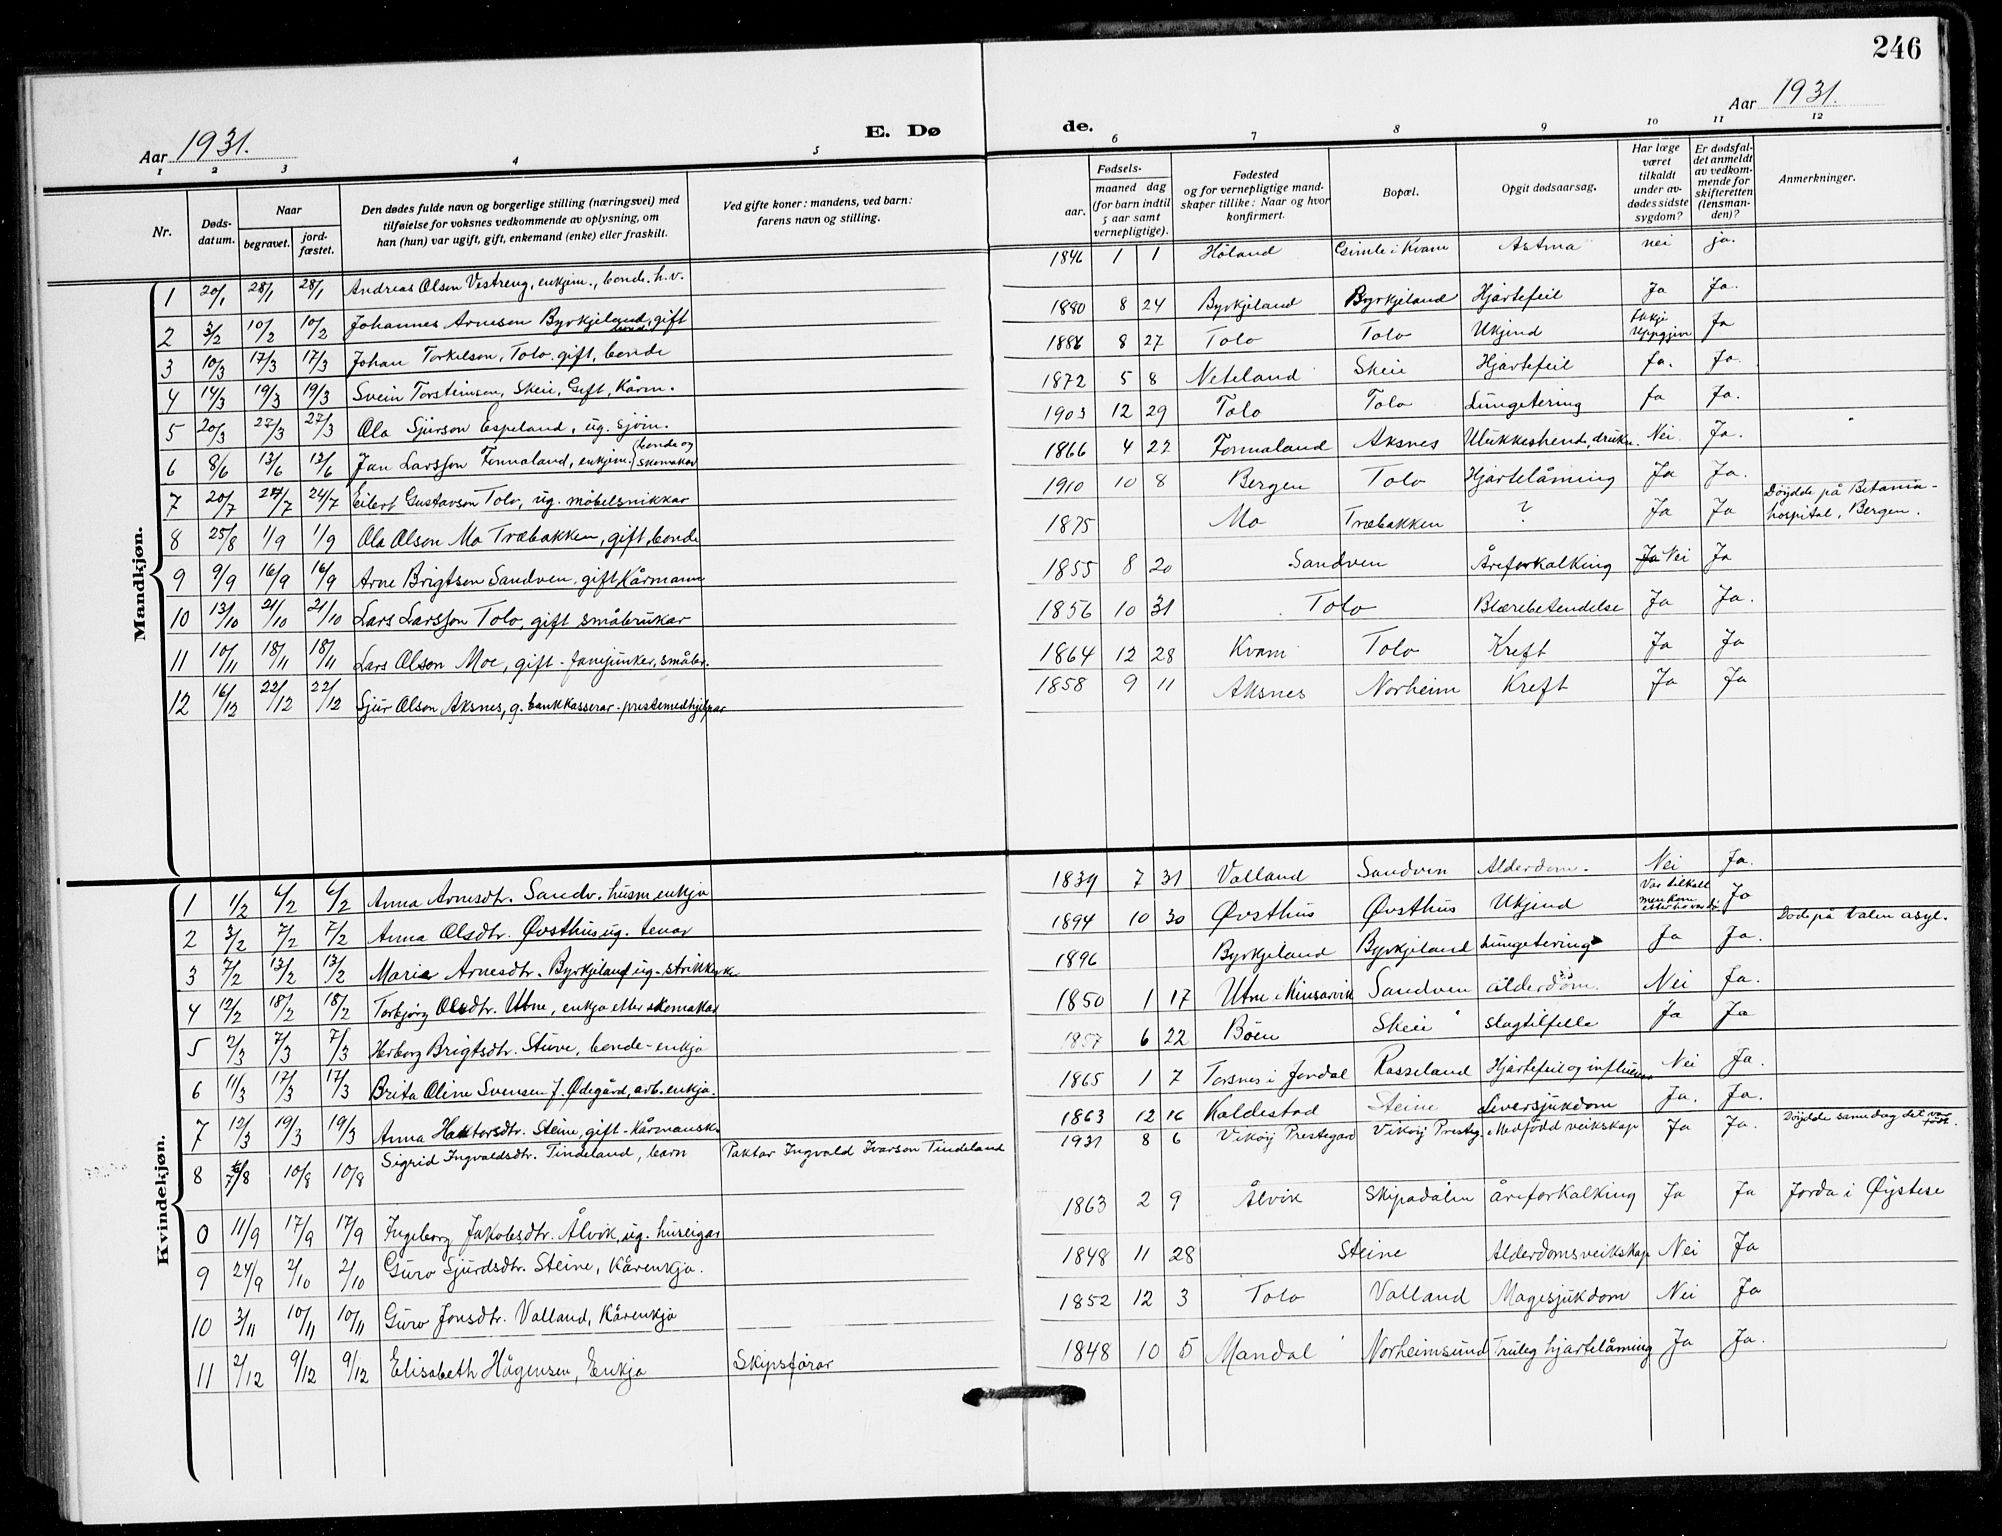 246
Aar 1931.
E. Dø
de.
Aar 1931.
1 2 3 4 5 6 7 8 9 10 11 12
Nr.
Døds-
datum.
Naar
begravet.
jord-
fæstet.
Den dødes fulde navn og borgerlige stilling (næringsvei) med
tilføielse for voksnes vedkommende av oplysning, om
han (hun) var ugift, gift, enkemand (enke) eller fraskilt.
Ved gifte koner: mandens, ved barn:
farens navn og stilling.
Fødsels-
aar.
maaned dag
(for barn indtil
5 aar samt
vernepligtige).
Fødested
og for vernepligtige mand-
skaper tillike: Naar og hvor
konfirmert.
Bopæl.
Opgit dødsaarsag.
Har læge
været
tilkaldt
under av-
dødes sidste
sygdom?
Er dødsfal-
det anmeldt
av vedkom-
mende for
skifteretten
(lensman-
den)?
Anmerkninger.
Mandkjøn.
1 20/1 28/1 28/1 Andreas Olsen Vestreng, enkjem., bonde. h.v. 1846 1 1 Høland Gimle i Kvam Astma nei ja.
2 3/2 10/2 10/2 Johannes Arnesen Byrkjeland, gift bonde 1880 8 24 Byrkjeland Byrkjeland Hjartefeil Ja Ja.
3 10/3 17/3 17/3 Johan Torkelson, Tolo. gift, bonde 1886 8 27 Tolo Tolo Ukjend Ikkje uppgjeve Ja
4 14/3 19/3 19/3 Svein Torsteinson, Skeie, Gift, Kårm. 1872 5 8 Neteland Skeie Hjartefeil Ja. Ja.
5 20/3 27/3 27/3 Ola Sjurson Espeland, ug. sjøm. 1903 12 29 Tolo Tolo Lungetering Ja Ja.
6 8/6 13/6 13/6 Jan Larsson Formaland, enkjem. (bonde og skomakar 1866 4 22 Formaland Aksnes Ulukkeshend., drukn. Nei. Ja.
7 20/7 24/7 24/7 Eilert Gustavson Tolo, ug. møbelsnikkar 1910 10 8 Bergen Tolo Hjartelåming Ja Ja.
8 25/8 1/9 1/9 Ola Olson Mo Træbakken, gift, bonde 1875 Mo Træbakken ? Ja Ja Døydde på Betania-
hospital, Bergen.
9 9/9 16/9 16/9 Arne Brigtson Sandven, gift Kårmann 1855 8 20 Sandven Åreforkalking Ja Nei Ja
10 13/10 21/10 21/10 Lars Larsson Tolo, gift småbrukar 1856 10 31 Tolo Blærebetendelse Ja Ja.
11 10/11 18/11 18/11 Lars Olson Moe, gift - fanejunker, småbr. 1864 12 28 Kvam Tolo Kreft Ja Ja
12 16/12 22/12 22/12 Sjur Olson Aksnes, g. bankkasserar - prestemedhjelpar 1858 9 11 Aksnes Norheim Kreft Ja Ja
Kvindekjøn.
1 1/2 6/2 6/2 Anna Arnesdtr. Sandv. husm. enkja 1839 7 31 Valland Sandven Alderdom. Nei Ja.
2 3/2 7/2 7/2 Anna Olsdtr. Øvsthus ug. tenar 1894 10 30 Øvsthus Øvsthus Ukjend Var tilkalt men kom etter ho var Ja
3 7/2 13/2 13/2 Maria Arnesdtr. Byrkjeland ug. 1896 Byrkjeland Byrkjeland Lungetering Ja Ja. Døde på Valen asyl.
4 12/2 18/2 18/2 Torbjørg Olsdtr. Utne, enkja etter skomakar 1850 1 17 Utne i Kinsarvik Sandven alderdom. Nei Ja.
5 2/3 7/3 7/3 Herborg Brigtsdtr. Stuve, bonde-enkja 1857 6 22 Bøen Skeie slagtilfelle Ja Ja
6 11/3 17/3 17/3 Brita Oline Svensen f. Ødegård, arb. enkja. 1865 1 7 Torsnes i Jondal Rosseland Hjartefeil og influensa Nei Ja.
7 12/3 19/3 19/3 Anna Haktorsdtr. Steine, gift - Kårmansk. 1863 12 16 Kaldestad Steine Leversjukdom Ja. Ja.
8 7/8 10/8 10/8 Sigrid Ingvaldsdtr. Tindeland, barn Paktar Ingvald Ivarson Tindeland 1931 8 6 Vikøy Prestegard Vikøy Presteg. Medfødd veikskap Ja Ja. Døydde same dag det var født.
0 11/9 17/9 17/9 Ingeborg Jakobsdtr. Ålvik, ug. huseigar 1863 2 9 Ålvik Skipadalen Åreforkalking Ja Ja Jorda i Øystese
9 24/9 2/10 2/10 Guro Sjurdsdtr. Steine, Kårenkja. 1848 11 28 Steine Alderdomsveikskap Nei Ja
10 3/11 10/11 10/11 Guro Jonsdtr. Valland, Kårenkja 1852 12 3 Tolo Valland Magesjukdom Nei Ja
11 2/12 9/12 9/12 Elisabeth Hågensen, Enkja Skipsførar 1848 10 5 Mandal Norheimsund Truleg hjartelåming Ja Ja.